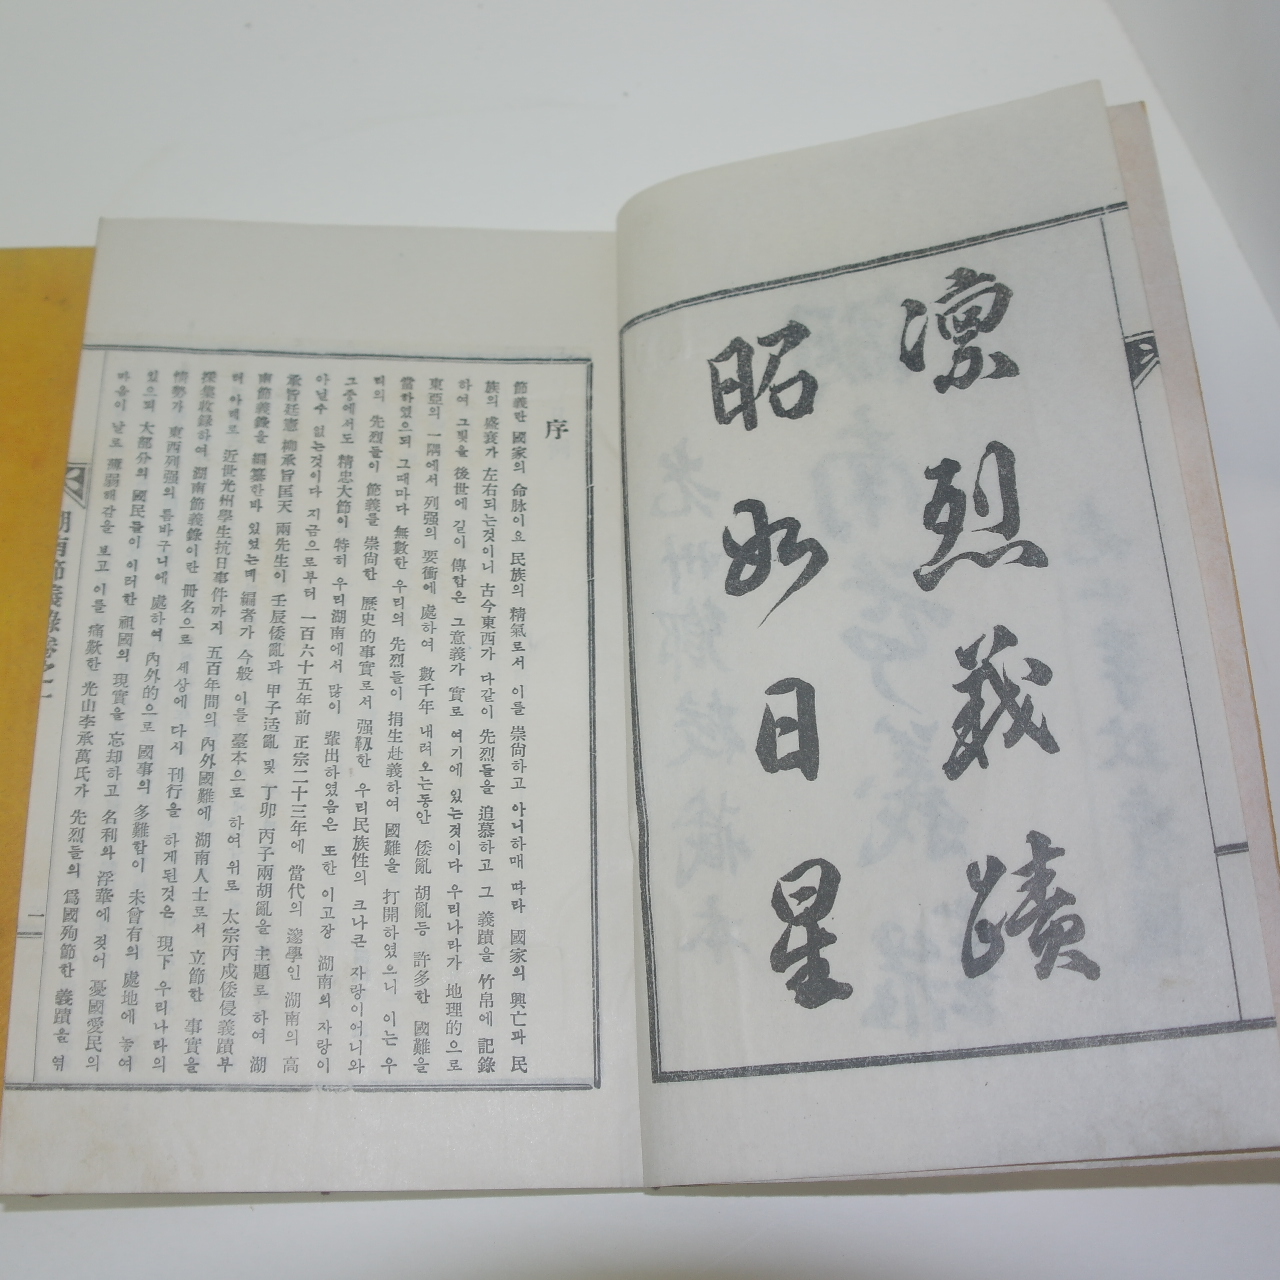 凛烈義蹟
昭如日星
序
節義란 國家의 命脉이요 民族의 精氣로서 이를 崇尙하고 아니하매 따라 國家의 興亡과 民
族의 盛衰가 左右되는것이니 古今東西가 다같이 先烈들을 追慕하고 그 義蹟을 竹帛에 記錄
하여 그빛을 後世에 길이 傳함은 그意義가 實로 여기에 있는것이다 우리나라가 地理的으로
東亞의 一隅에서 列强의 要衝에 處하여 數千年 내려오는동안 倭亂 胡亂등 許多한 國難을
當하였으되 그때마다 無數한 우리의 先烈들이 捐生赴義하여 國難을 打開하였으니 이는 우
리의 先烈들이 節義를 崇尙한 歷史的事實로서 强靱한 우리民族性의 크나큰 자랑이어니와
그중에서도 精忠大節이 特히 우리湖南에서 많이 輩出하였음은 또한 이고장 湖南의 자랑이
아닐수 없는것이다 지금으로부터 一百六十五年前 正宗二十三年에 當代의 邃學인 湖南의 高
承旨廷憲 柳承旨匡天 兩先生이 壬辰倭亂과 甲子适亂 및 丁卯 丙子兩胡亂을 主題로 하여 湖
南節義錄을 編纂한바 있었는데 編者가 今般 이를 臺本으로 하여 위로 太宗丙戌倭侵義蹟부
터 아래로 近世光州學生抗日事件까지 五百年間의 內外國難에 湖南人士로서 立節한 事實을
採集收錄하여 湖南節義錄이란 冊名으로 세상에 다시 刊行을 하게된것은 現下 우리나라의
情勢가 東西列强의 틈바구니에 處하여 內外的으로 國事의 多難함이 未曾有의 處地에 놓여
있으되 大部分의 國民들이 이러한 祖國의 現實을 忘却하고 名利와 浮華에 젖어 憂國愛民의
마음이 날로 薄弱해감을 보고 이를 痛歎한 光山李承萬氏가 先烈들의 爲國殉節한 義蹟을 엮
湖南節義錄卷之一
一